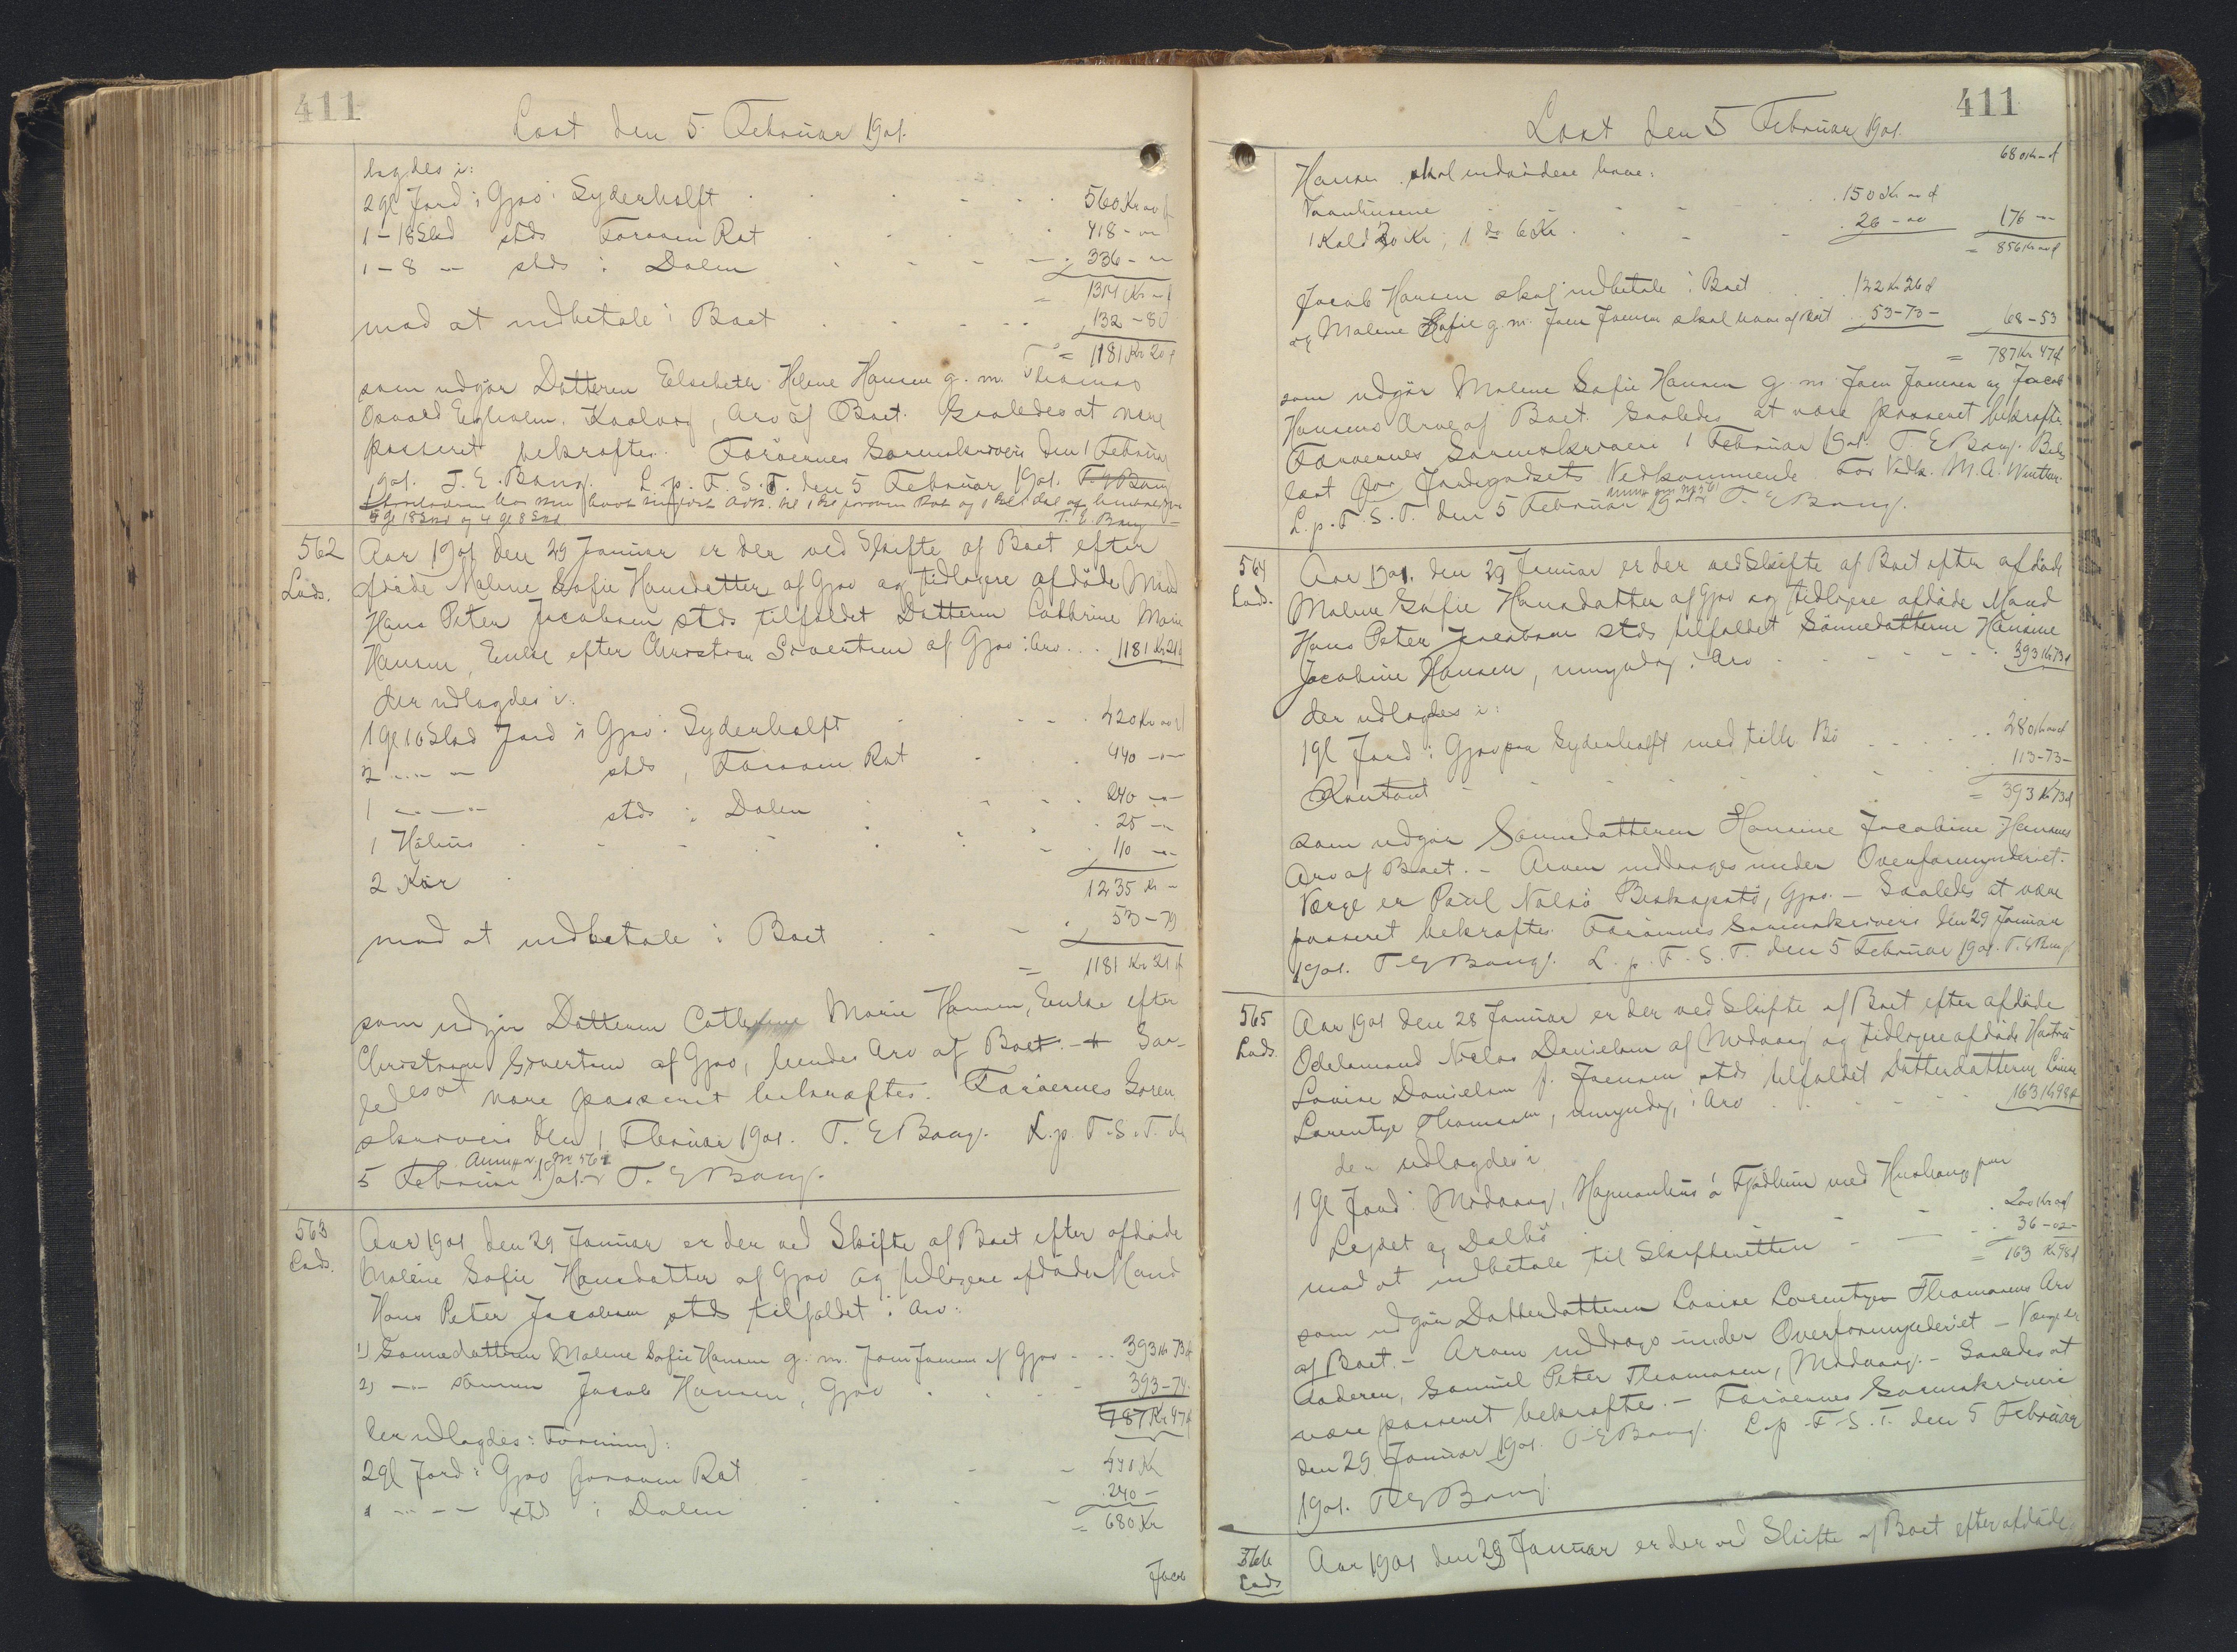 411
Læst den 5. Februar 1901.
lagdes i:
2 gl Jord i Gjov i Syderhalft 560 Kr
1 - 18 Skd stds Foroven Rat 418 - "
1 - 8 " stds i Dalen 336 - "
= 1314 Kr
mod at indbetale i Boet 132 - 80
= 1181 Kr 20
som udgör Datteren Elsebeth Helene Hansen g. m. Thomas
Osvald Egholm, Kvalvig, Arv af Boet. Saaledes at være
passeret bekræftes. Færöernes Sorenskriveri den 1 Februar
1901. T. E. Bang. L. p. F. S. T. den 5 Februar 1901. T. E. Bang
5 gl 18 Skd og 4 gl 8 Skd T. E. Bang
562
Lods.
Aar 1901 den 29 Januar er der ved Skifte af Boet efter
afdöde Malene Sofie Hansdatter af Gjov og tidligere afdöde Mand
Hans Peter Jacobsen stds tilfaldet Datteren Cathrine Marie
Hansen, Enke efter Christian Sivertsen af Gjov i Arv 1181 Kr 21
der udlagdes i:
1 gl 10 Skd Jord i Gjov i Syderhalft 420 Kr
2 " " stds, Foroven Rat 440 - "
1 " " stds i Dalen 240 - "
1 Hölius 25 - "
2 Kör 110 - "
1235 Kr -
mod at indbetale i Boet 53 - 79
= 1181 Kr 21
som udgör Datteren Cathrine Marie Hansen, Enke efter
Christian Sivertsen af Gjov, hendes Arv af Boet. - Saa-
ledes at være passeret bekræftes. Færöernes Soren
skriveri den 1 Februar 1901. T. E Bang. L. p. F. S. T. d.
5 Februar 1901. T. E Bang.
563
Lods.
Aar 1901 den 29 Januar er der ved Skifte af Boet efter afdöde
Malene Sofie Hansdatter af Gjov og tidligere afdöde Mand
Hans Peter Jacobsen stds tilfaldet i Arv:
1) Sönnedatteren Malene Sofie Hansen g. m. Joen Joensen af Gjov 393 Kr 73
2) " sönnen Jacob Hansen, Gjov 393 - 74
787 Kr 47
der udlagdes i Forening:
2 gl Jord i Gjov foroven Rat 440 Kr
1 " " stds i Dalen 240 -
= 680 Kr
Jacob
411
Læst den 5 Februar 1901.
680 Kr
Hansen skal endvidere have:
Vaanhusene 150 Kr
1 Kald 20 Kr, 1 do 6 Kr 26 - " 176 - "
= 856 Kr
Jacob Hansen skal indbetale i Boet 122 Kr 26
og Malene Sofie g. m. Joen Joensen skal have af Boet 53 - 73 - 68 - 53
= 787 Kr 47
som udgör Malene Sofie Hansen g. m. Joen Joensen og Jacob
Hansens Arv af Boet. Saaledes at være passeret bekræftes.
Færöernes Sorenskriveri 1 Februar 1901. T. E Bang. Bek
læst for Jordegodsets Vedkommende. For Vedk. M. A. Winther.
L. p. F. S. T. den 5 Februar 1901 T. E Bang.
564
Lods.
Aar 1901. den 29 Januar er der ved Skifte af Boet efter afdöde
Malene Sofie Hansdatter af Gjov og tidligere afdöde Mand
Hans Peter Jacobsen stds tilfaldet Sönnedatteren Hansine
Jacobine Hansen, umyndig, i Arv 393 Kr 73
der udlagdes i:
1 gl Jord i Gjov paa Syderhalft med tilh. Bö 280 Kr
Kontant 113 - 73 -
= 393 Kr 73
som udgör Sönnedatteren Hansine Jacobine Hansens
Arv af Boet. - Arven inddrages under Overformynderiet.
Værge er Poul Nolsö Biskopstö, Gjov. - Saaledes at være
passeret bekræftes. Færöernes Sorenskriveri den 29 Januar
1901. T. E Bang. L. p. F. S. T. den 5 Februar 1901. T. E Bang
565
Lods.
Aar 1901 den 28 Januar er der ved Skifte af Boet efter afdöde
Odelsmand Niclas Danielsen af Midvaag og tidligere afdöde Hustru
Louise Danielsen f. Joensen stds tilfaldet Datterdatteren Louise
Lorentze Thomsen, umyndig, i Arv 163 Kr 98
der udlagdes i
1 gl Jord i Midvaag, Hapnarhús á Fjødlum med Hushang paa
Lejdet og Dalbö 200 Kr
mod at indbetale til Skifteretten 36 - 02 -
= 163 Kr 98
som udgör Datterdatteren Louise Lorentzen Thomsens Arv
af Boet. - Arven inddrages under Overformynderiet - Værge er
Faderen, Samuel Peter Thomasen, Midvaag. - Saaledes at
være passeret bekræftes. - Færöernes Sorenskriveri
den 29 Januar 1901. T. E Bang. L. p. F. S. T. den 5 Februar
1901. T. E Bang.
566
Lods
Aar 1901 den 29 Januar er der ved Skifte af Boet efter afdöde